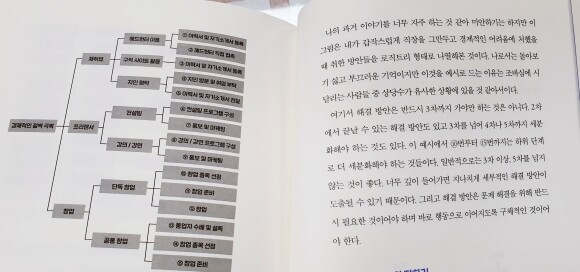 ① 이력서 및 자기소개서 등록
헤드헌터 이용
② 헤드헌터 직접 접촉
재취업
구직 사이트 활용
③ 이력서 및 자기소개서 등록
④ 지인 방문 및 취업 부탁
지인 청탁
⑤ 이력서 및 자기소개서 전달
⑥ 컨설팅 프로그램 구성
컨설팅
⑦ 홍보 및 마케팅
경제적인 압박 극복
프리랜서
⑧ 강의 / 강연 프로그램 구성
강의 / 강연
⑨ 홍보 및 마케팅
⑩ 창업 종목 선정
단독 창업
⑪ 창업 준비
⑫ 창업
창업
⑬ 동업자 수배 및 설득
공동 창업
⑭ 창업 종목 선정
창업 준비
나의 과거 이야기를 너무 자주 하는 것 같아 미안하기는 하지만 이
그림은 내가 갑작스럽게 직장을 그만두고 경제적인 어려움에 처했을
때 취한 방안들을 로직트리 형태로 나열해본 것이다. 나로서는 돌아보
기 싫고 부끄러운 기억이지만 이것을 예시로 드는 이유는 조바심에 시
달리는 사람들 중 상당수가 유사한 상황에 있을 것 같아서이다.
여기서 해결 방안은 반드시 3차까지 가야만 하는 것은 아니다. 2차
에서 끝날 수 있는 해결 방안도 있고 3차를 넘어 4차나 5차까지 세분
화해야 하는 것도 있다. 이 예시에서 ⑩번부터 ⑮번까지는 하위 단계
로 더 세분화해야 하는 것들이다. 일반적으로는 3차 이상, 5차를 넘지
않는 것이 좋다. 너무 깊이 들어가면 지나치게 세부적인 해결 방안이
도출될 수 있기 때문이다. 그리고 해결 방안은 문제 해결을 위해 반드
시 필요한 것이어야 하며 바로 행동으로 이어지도록 구체적인 것이어
야 한다.